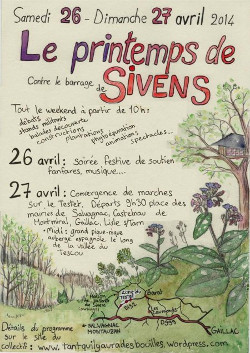 Samedi 26 - Dimanche 27 avril 2014
Le printemps de
Contre le barrage de SIVENS
Tout le weekend à partir de 10h:
débats
stands militants
balades découverte
constructions
plantations
phytoépuration
animations, spectacles...
26 avril: Soirée festive de soutien
fanfares, musique....
27 avril: Convergence de marches
sur le Testet. Départs 9h30 place des
mairies de Salvagnac, Castelnau de
Montmiral, Gaillac, Lisle/Tarn
- Midi: grand pique-nique
auberge espagnole, le long
de la vallée du
Tescou
Barat
D999
GAILLAC
SALVAGNAC
MONTAUBAN
Détails du programme
sur le site du
collectif: www.tantquilyauradesbouilles.wordpress.com